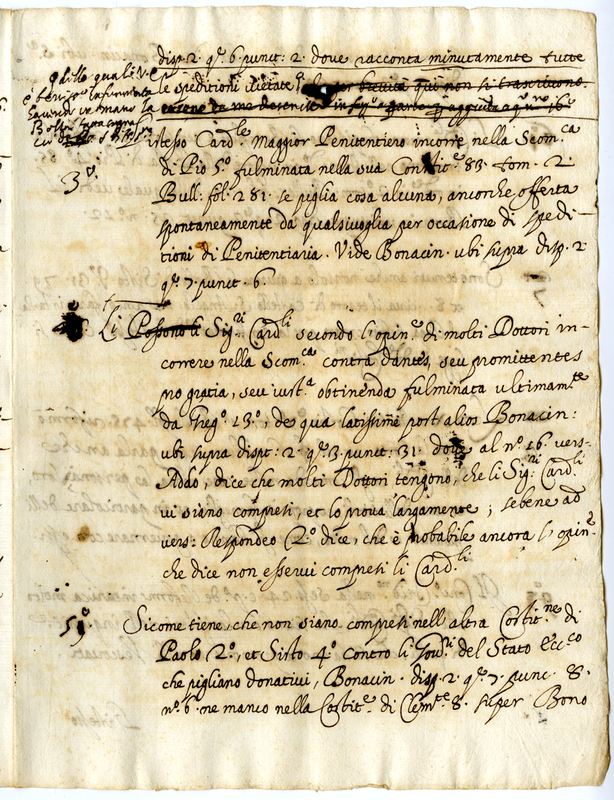 disp. 2. q. 6. punct: 2. dove racconta minutamente tutte
le speditioni vietate per brevità qui non si trascrivono.
istesso Card.le Maggior Penitentiero incorre nella Scom.ca
3º.
di Pio 5º fulminata nella sua Constit.e 83. tom. 2.
Bull. fol. 281. se piglia cosa alcuna, ancorche offerta
spontaneamente da qualsivoglia per occasione di spedi-
tioni di Penitentiaria. Vide Bonacin. ubi supra disp. 2.
q. 7. punct. 6.
Li Possono li Sig.ri Card.li secondo l'opin.e di molti Dottori in-
correre nella Scom.ca contra dantes, seu promittentes
pro gratia, seu iust.a obtinenda fulminata ultimam.te
da Greg.o 13º, de qua latissime post alios Bonacin:
ubi supra disp: 2. q. 3. punct: 31. dove al nº. 16. vers.
Addo, dice che molti Dottori tengono, che li Sig.ri Card.li
vi siano compresi, et lo prova largamente; sebene ad
vers: Respondeo 2º. dice, che è probabile ancora l'opin.e
che dice non esservi compresi li Card.li
5º.
Sicome tiene, che non siano compresi nell'altra Costit.ne di
Paolo 2º, et Sisto 4º contro li Gov.ri del Stato Ecc.co
che pigliano donativi, Bonacin. disp. 2. q. 7. punc. 8.
nº. 6. ne manco nella Costit.e di Clem.te 8. super Bono